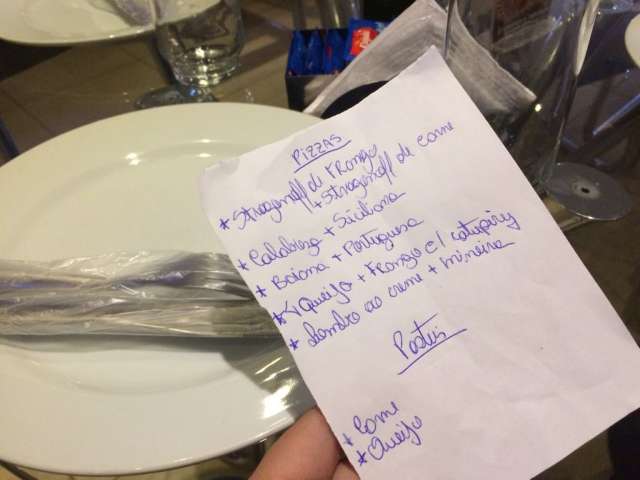 PIZZAS
* Strogonoff de Frango
+ Strogonoff de carne
* Calabresa + Siciliana
* Baiana + Portuguesa
* 4 Queijo + Frango c/ catupiry
* Lombo ao creme + mineira
Pasteis
* Carne
* Queijo